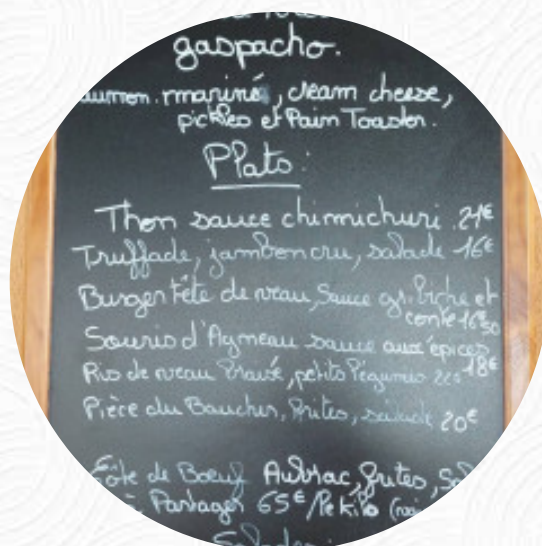 gaspacho.
mariné, cream cheese,
pickles et Pain Toaster.
Plats:
Thon sauce chimichuri 21€
Truffade, jambon cru, salade 16€
Burger tête de veau, Sauce gribiche et
comté 16€50
Souris d'Agneau sauce aux épices
18€
Ris de veau braisé, petits légumes 22€
Pièce du Boucher, frites, salade 20€
Côte de Boeuf Aubrac, frites,
à Partager 65€/le kilo
Salades: